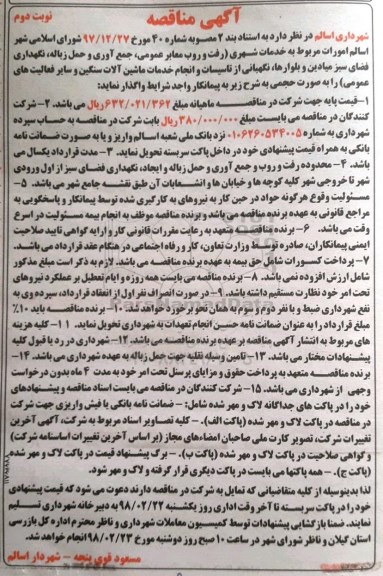 آگهی مناقصه
نوبت دوم
شهرداری اسالم در نظر دارد به استناد بند ۲ مصوبه شماره ۴۰ مورخ ۹۷/۱۲/۲۷ شورای اسلامی شهر
اسالم امورات مربوط به خدمات شهری (رفت و روب معابر عمومی، جمع آوری و حمل زباله، نگهداری
فضای سبز میادین و بلوارها، نگهبانی از تاسیسات و انجام خدمات ماشین آلات سنگین و سایر فعالیت های
عمومی) را به صورت حجمی به شرح زیر به پیمانکار واجد شرایط واگذار نماید:
۱-قیمت پایه جهت شرکت در مناقصه ماهیانه مبلغ ۶۳۲/۰۲۱/۳۶۲ ریال می باشد. ۲- شرکت
کنندگان در مناقصه می بایست مبلغ ۳۸۰/۰۰۰/۰۰۰ ریال بابت شرکت در مناقصه به حساب سپرده
شهرداری به شماره ۰۱۰۶۲۶۰۵۳۴۰۰۵ نزد بانک ملی شعبه اسالم واریز و یا به صورت ضمانت نامه
بانکی به همراه قیمت پیشنهادی خود در داخل پاکت سربسته تحویل نماید. ۳- مدت قرارداد یکسال می
باشد. ۴- محدوده رفت و روب و جمع آوری و حمل زباله و ایجاد، نگهداری فضای سبز از اول ورودی
شهر تا خروجی شهر کلیه کوچه ها و خیابان ها و انشعابات آن طبق نقشه جامع شهر می باشد. ۵-
مسئولیت وقوع هرگونه حوادث در حین کار به نیروهای به کارگیری شده توسط پیمانکار و پاسخگویی به
مراجع قانونی به عهده برنده مناقصه می باشد و برنده مناقصه موظف به انجام بیمه مسئولیت در اسرع
وقت می باشد. ۶- برنده مناقصه متعهد به رعایت مقررات قانونی کار و ارایه گواهی تایید صلاحیت
ایمنی پیمانکاران، صادره توسط وزارت تعاون، کار و رفاه اجتماعی در هنگام عقد قرارداد می باشد.
۷- پرداخت کسورات شامل حق بیمه به عهده برنده مناقصه می باشد. لازم به ذکر است مبلغ مذکور
شامل ارزش افزوده نمی باشد. ۸- برنده مناقصه می بایست همه روزه و ایام تعطیل بر عملکرد نیروهای
تحت امر خود نظارت مستقیم داشته باشد. ۹- در صورت انصراف نفر اول از انعقاد قرارداد، سپرده وی به
نفع شهرداری ضبط و با نفر دوم و سوم به همان نحو برخورد خواهد شد. ۱۰- برنده مناقصه باید ۱۰٪
مبلغ قرارداد را به عنوان ضمانت نامه حسین انجام تعهدات به شهرداری تحویل نماید. ۱۱- کلیه هزینه
های مربوط به انتشار آگهی مناقصه بر عهده برنده مناقصه می باشد. ۱۲- شهرداری در رد یا قبول کلیه
پیشنهادات مختار می باشد. ۱۳- تامین وسیله نقلیه جهت حمل زباله به عهده شهرداری می باشد. ۱۴-
برنده مناقصه متعهد به پرداخت حقوق و مزایای پرسنل تحت امر خود به مدت ۴ ماه بدون درخواست
وجهی از شهرداری می باشد. ۱۵- شرکت کنندگان در مناقصه می بایست اسناد مناقصه و پیشنهادهای
خود را در پاکت های جداگانه لاک و مهر شده شامل: - ضمانت نامه بانکی یا فیش واریزی جهت شرکت
در مناقصه در پاکت لاک و مهر شده (پاکت الف). - کلیه تصاویر اسناد مربوط به شرکت، آگهی آخرین
تغییرات شرکت، تصویر کارت ملی صاحبان امضاءهای مجاز (بر اساس آخرین تغییرات اساسنامه شرکت)
و گواهی صلاحیت در پاکت لاک و مهر شده (پاکت ب). - برگ پیشنهاد قیمت در پاکت لاک و مهر شده
(پاکت ج). - همه پاکتها می بایست در پاکت دیگری قرار گرفته و لاک و مهر شود.
لذا بدینوسیله از کلیه متقاضیانی که تمایل به شرکت در مناقصه دارند دعوت می شود که قیمت پیشنهادی
خود را در پاکت سربسته تا آخر وقت اداری روز یکشنبه ۹۸/۰۲/۲۲ به دبیرخانه شهرداری تسلیم
نمایند. ضمنا بازگشایی پیشنهادات توسط کمیسیون معاملات شهرداری و ناظر محترم اداره کل بازرسی
استان گیلان و ناظر شورای شهر در ساعت ۱۰ صبح روز دوشنبه مورخ ۹۸/۰۲/۲۳ انجام خواهد شد.
مسعود قوی پنجه - شهردار اسالم